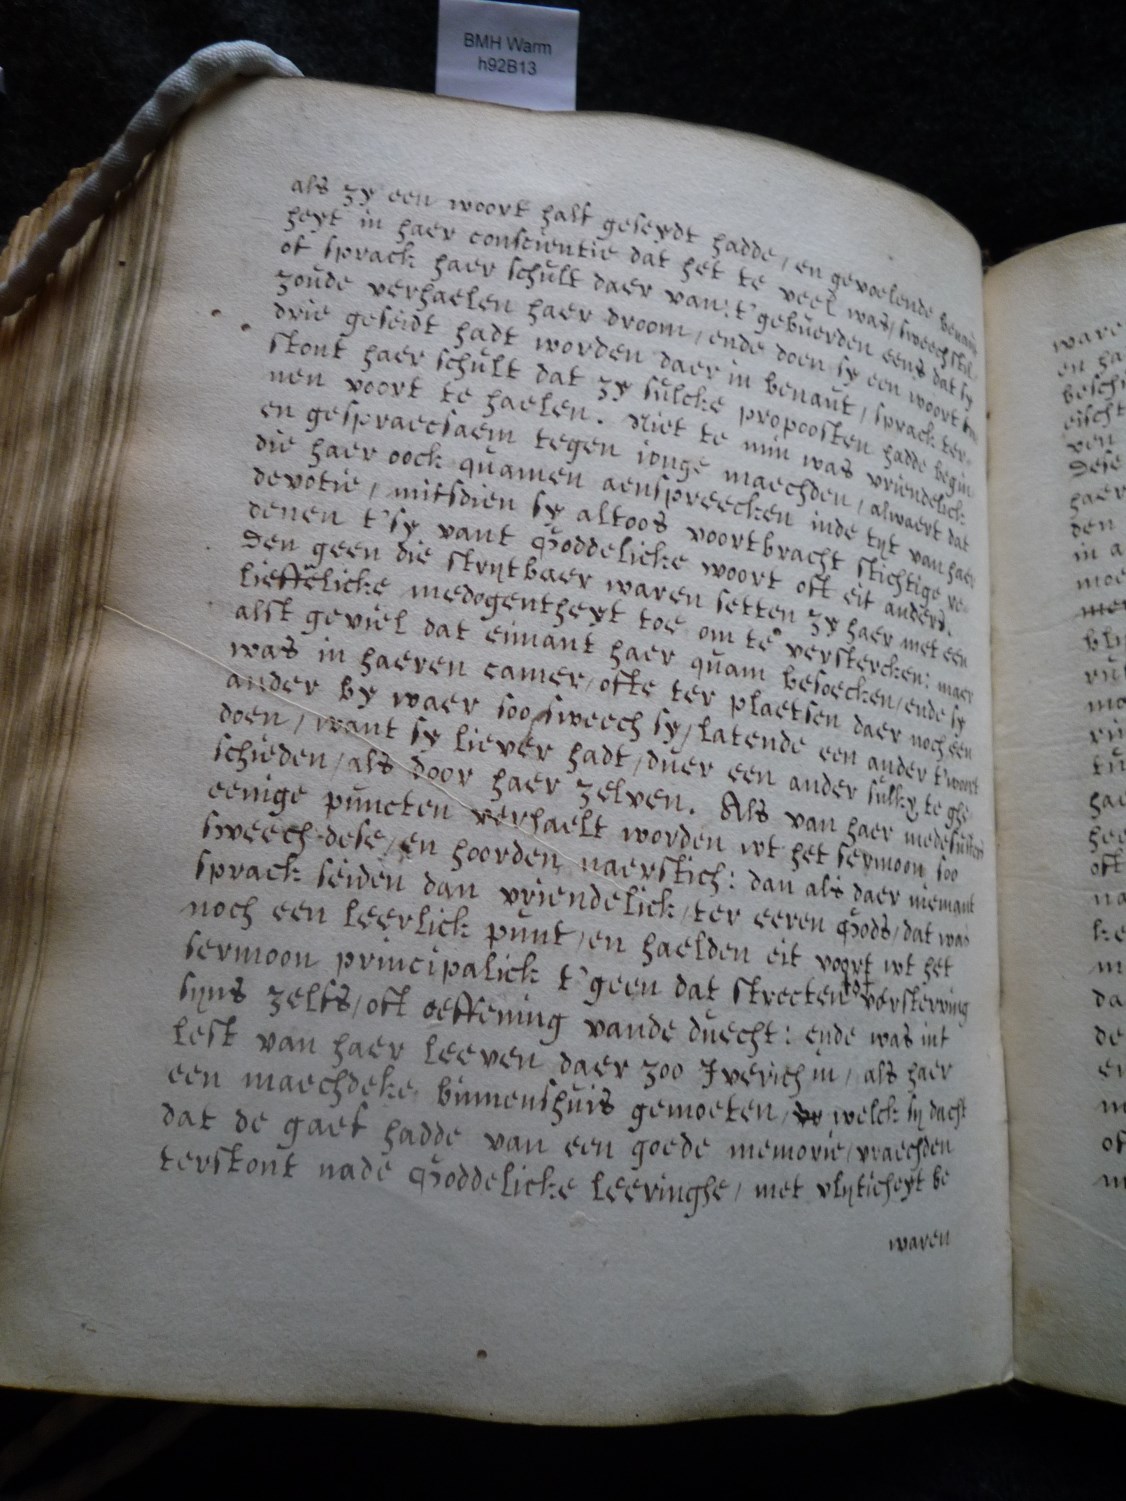 BMH Warm
h92B13
als zy een woort half geseydt hadde / en gevoelende
heyt in haer conscientie dat het te veel was / sweech stil
of sprack haer schult daer van: t'gebuerden eens dat sy
zoude verhaelen haer droom / ende doen sy een woort
drie geseidt hadt worden daer in benaut / sprack ter=
stont haer schult dat zy sulcke propoosten hadde begin
nen voort te haelen. Niet te min was vriendelick
en gespraecsaem tegen ionge maechden / alwaert dat
die haer oock quamen aenspreecken inde tyt van haer
devotie / mitsdien sy altoos voortbracht stichtige re=
denen t'sy vant Goddelicke woort oft eit anders.
Den geen die strytbaer waren setten zy haer met een
lieffelicke medogentheyt toe om te verstercken: maer
alst geviel dat eimant haer quam besoecken / ende sy
was in haeren camer / ofte ter plaetsen daer noch een
ander by waer soo sweech sy / latende een ander t'woort
doen / want sy liever hadt / duer een ander sulkx te ghe
schieden / als door haer zelven. Als van haer medesusters
eenige puncten verhaelt worden wt het sermoon soo
sweech dese / en hoorden naerstich: dan als daer niemant
sprack seiden dan vriendelick / ter eeren Gods / dat was
noch een leerlick punt / en haelden eit voort wt het
sermoon principalick t'geen dat strecten tot versterving
syns zelfs / oft oeffening vande duecht: ende was int
lest van haer leeven daer zoo Iverich in / als haer
een maechdeke binnenshuis gemoeten / welck sy dacht
dat de gaef hadde van een goede memorie / vraechden
terstont nade Goddelicke leeringhe / met vlyticheyt be
waren